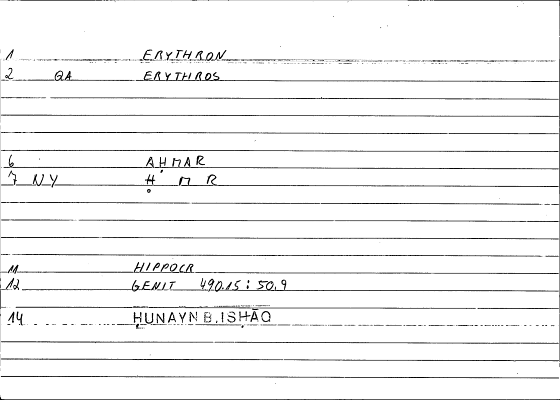 1 ERYTHRON
2 QA ERYTHROS
6 AḤMAR
7 NY Ḥ M R
11 HIPPOCR
12 GENIT 490.15 : 50.9
14 ḤUNAYN B. ISḤĀQ